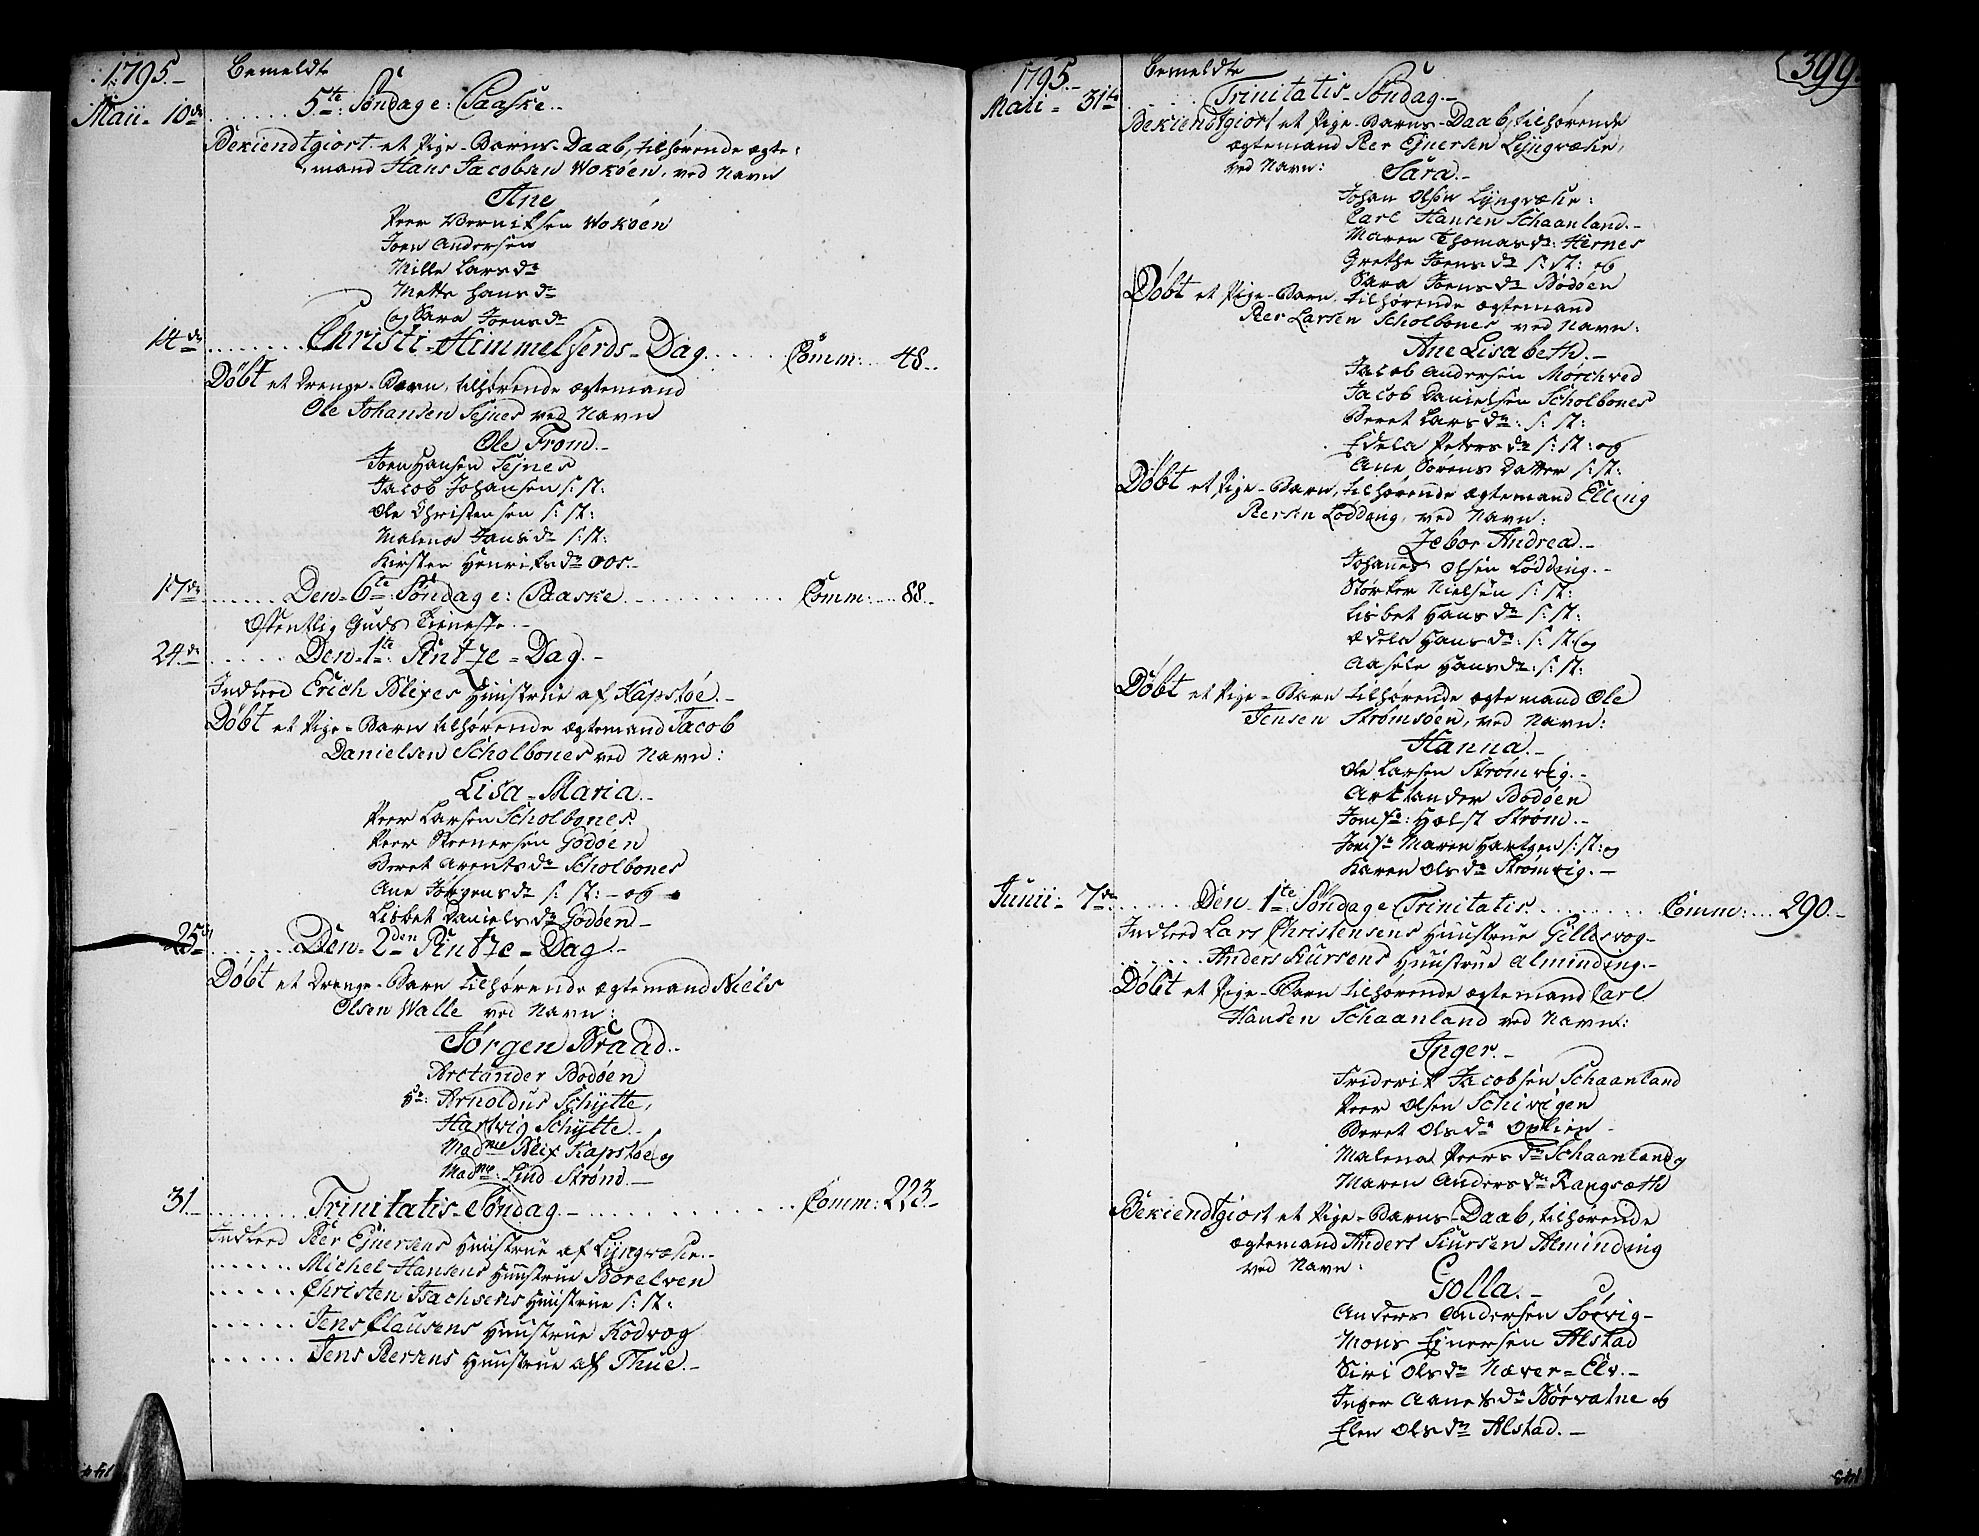 1795.-
Bemeldte
Maii - 10de ....... 5te Søndag e: Paaske.-
Bekiendtgiort et Pige-Barns-Daab, tilhørende ægte:
mand Hans Jacobsen Wokøen, ved Navn
Ane
Peer Bernitsen Wokøen
Joen Andersen
Mille Larsdr
Mette Hansdr
og Sara Joensdr
14de ........ Christi-Himmelferds-Dag...... Comm: ... 48..
Døbt et Drenge-Barn, tilhørende ægtemand
Ole Johansen Sejnes ved Navn
Ole From.-
Joen Hansen Sejnes
Jacob Johansen s: st:
Ole Christensen s: st:
Malena Jansdr s: st:
Kirsten Henriksdr oos.-
17de ...... Den 6te Søndag e: Paaske............ Comm: ... 88..
Offentlig Guds Tieneste.-
24de ...... Den 1te Pintze-Dag.-
Indleed Erich Blixes Huustrue af Kapstøe.-
Døbt et Pige-Barn tilhørende ægtemand Jacob
Danielsen Scholbones ved Navn:
Lisa-Maria.-
Peer Larsen Scholbones
Peer Steenersen Godøen
Beret Arentsdr Scholbones
Ane Jørgensdr s: st: - og
Lisbet Danielsdr Godøen-
25de ....... Den 2den Pintze-Dag.-
Døbt et Drenge-Barn tilhørende ægtemand Niels
Olsen Walle ved Navn:
Jørgen Braad.-
Arctander Bodøen
Hr: Arnoldus Schytte,
Hartvig Schytte.-
Madme Blix Kapstøe og
Madme: Lind Strønd.-
31.- ....... Trinitatis-Søndag.-............ Comm: 223.-
Indleed Peer Ejnersens Huustrue af Lyngvæhr.-
...... Michel Hansens Huustrue Børelven
...... Christen Isachsens Huustrue s: st:
...... Jens Clausens Huustrue Kodvog
...... Jens Peersens Huustrue af Thue.-
1795.-
Bemeldte
399.
Maii - 31te ..... Trinitatis-Søndag.-
Bekiendtgiort et Pige-Barns-Daab, tilhørende
ægtemand Peer Ejnersen Lyngvæhr,
ved Navn:
Sara.-
Johan Olsen Lyngvæhr:
Carl Hansen Schaanland.-
Maren Thomasdr: Hernes
Grethe Joensdr s: st: og
Sara Joensdr Bodøen
Døbt et Pige-Barn, tilhørende ægtemand
Peer Larsen Scholbones, ved Navn:
Ane Lisabeth.-
Jacob Andersen Mørchved
Jacob Danielsen Scholbones
Beret Larsdr: s: st:
Edela Petersdr s: st: og
Ane Sørens Datter s: st:
Døbt et Pige-Barn, tilhørende ægtemand Elling
Peersen Lødding, ved Navn:
Zebor Andrea.-
Johanes Olsen Lødding.-
Størker Nielsen s: st:
Lisbet Hansdr s: st:
Ædela Hansdr: s: st: og
Aasele Hansdr: s: st:
Døbt et Pige-Barn tilhørende ægtemand Ole
Jensen Strømsøen, ved Navn:
Hanna.-
Ole Larsen Strømvig.-
Arktander Bodøen
Jomfr: Holst Strøm.-
Jomfr Maren Hartgen s: st: og
Karen Olsdr Strømvig.-
Junii - 7de ...... Den 1te Søndag e Trinitatis.......... Comm: ... 290.-
Indleed Lars Christensens Huustrue Gillesvog-
....... Anders Siursens Huustrue Alminding.-
Døbt et Pige-Barn tilhørende ægtemand Carl
Hansen Schaanland ved Navn:
Inger.-
Friderik Jacobsen Schaanland
Peer Olsen Schivigen
Beret Olsdr Opkien-
Malena Peersdr Schaanland og
Maren Andersdr Rangsæth
Bekiendtgiort et Pige-Barns-Daab, tilhørende
ægtemand Anders Siursen Alminding
ved Navn:
Golla.-
Anders Andersen Sørvig-
Mons Ejnersen Alstad
Siri Olsdr Næver=Elv.-
Inger Aanetsdr Børvatne og
Elen Olsdr Alstad.-